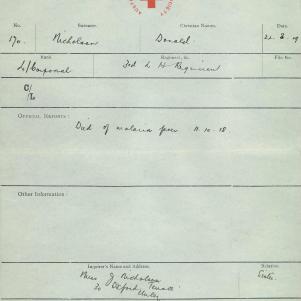 No. Surname. Christian Names. Date.
170. Nicholson Donald. 22.3.19
Rank Regiment, &c. File No.
L/Corporal 3rd L H Regiment
OFFICIAL REPORTS:
Died of malaria fever 11.10.18.
Other Information:
Inquirer's Name and Address. Relation.
Miss J Nicholson Sister.
20 Oxford Terrace
Unley